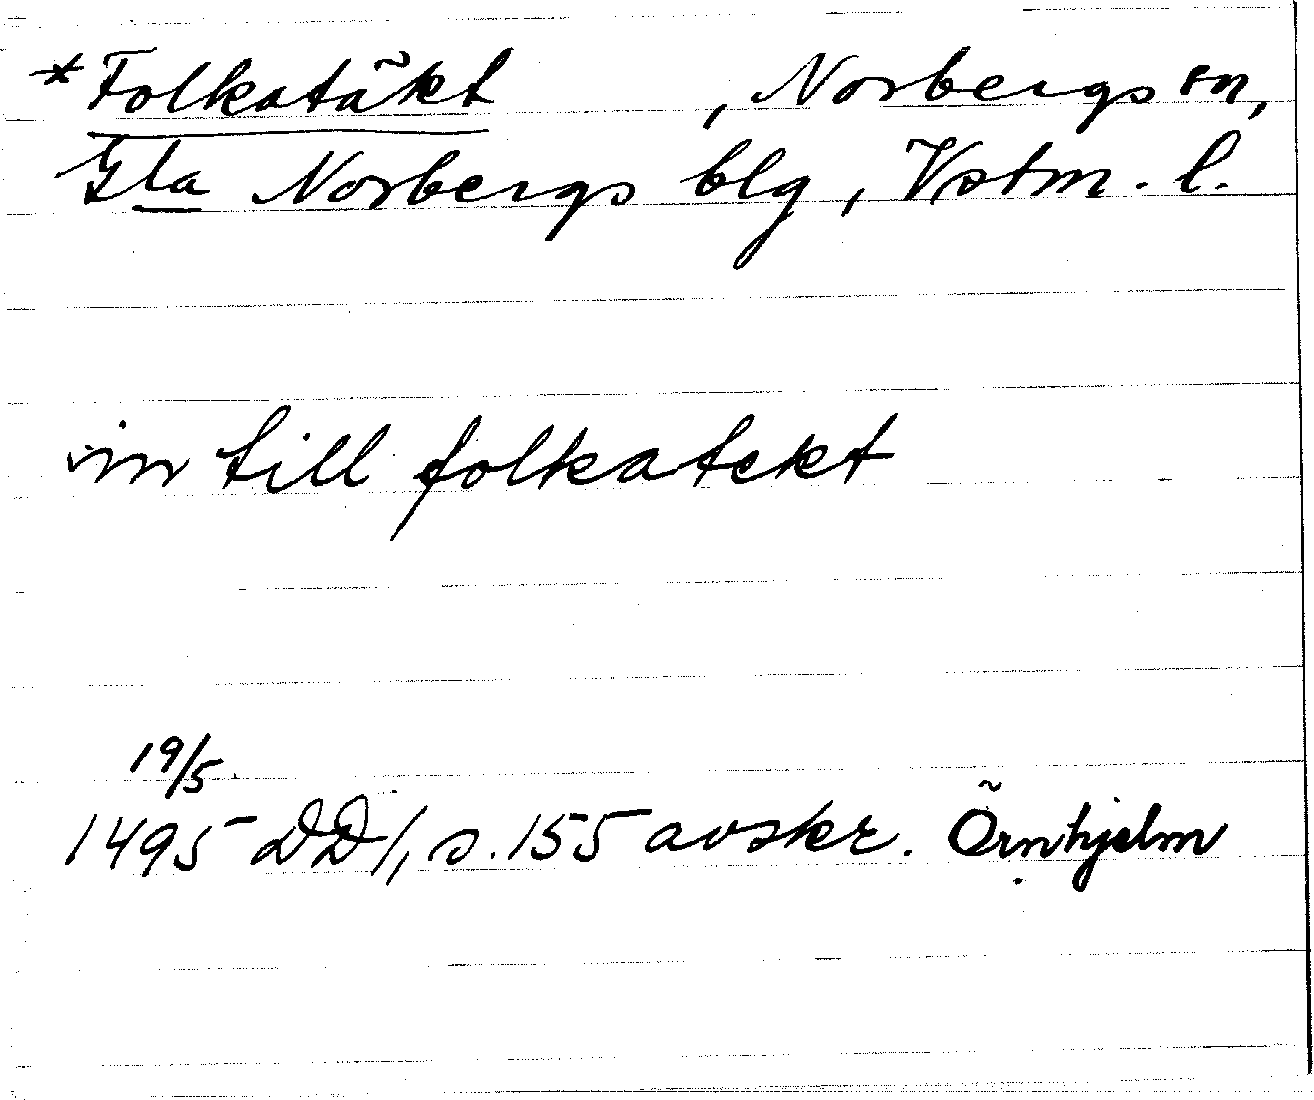 *Folkatäkt , Norbergs sn,
Gla Norbergs blg, Vstm. l.
in till folkatekt
19/5
1495 DD1, s. 155 avskr. Örnhjelm